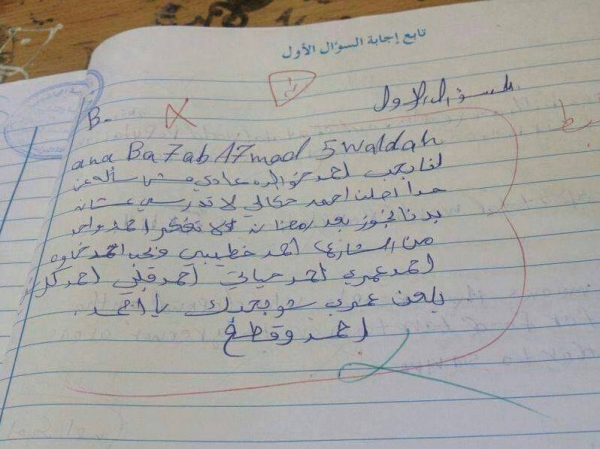 تابع إجابة السؤال الأول
السؤال الاول
B-
ana Ba7ab A7mad 5waldah
بحب احمد عادي مش سألة عن
حدا اصلن احمد حكالي لا تدرسي عستان
بدنا نجوز بعد رمضان لا تفكر احمد واحد
من الشارع احمد خطيبي احمد
احمد عمري احمد حياتي احمد قلبي احمد كل
يلعن عمري شو بحبك يا احمد .
احمد وقطع